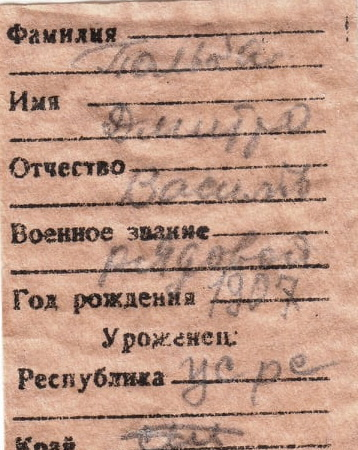 Фамилия
Имя Дмитро
Отчество Василів
Военное звание рядовой
Год рождения 1907
Уроженец:
Республика усре
Край